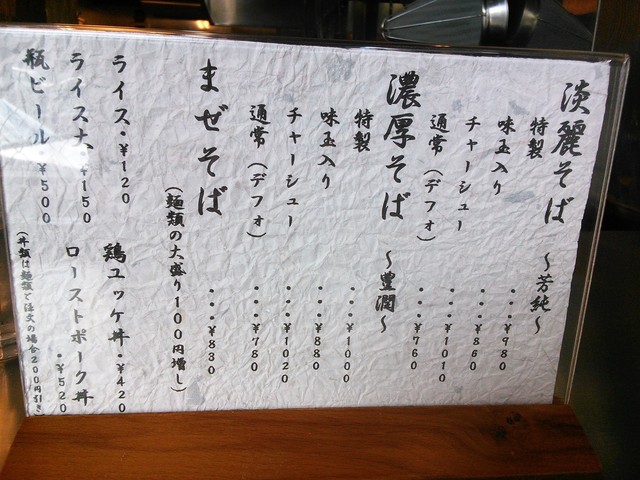 淡麗そば 〜芳純〜
特製・・・¥980
味玉入り・・・¥860
チャーシュー・・・¥1010
通常(デフォ)・・・¥760
濃厚そば 〜豊潤〜
特製・・・¥1000
味玉入り・・・¥880
チャーシュー・・・¥1020
通常(デフォ)・・・¥780
まぜそば・・・¥830
(麺類の大盛り100円増し)
ライス・¥120
鶏ユッケ丼・¥420
ライス大・¥150
ローストポーク丼・¥520
瓶ビール¥500
(丼類は麺類と注文の場合200円引き)